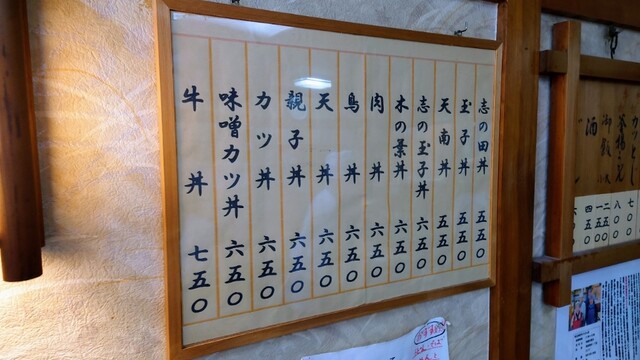 志の田丼 五五〇
玉子丼 五五〇
天南丼 五五〇
志の玉子丼 六五〇
木の葉丼 六五〇
肉丼 六五〇
鳥丼 六五〇
天丼 六五〇
親子丼 六五〇
カツ丼 六五〇
味噌カツ丼 六五〇
牛丼 七五〇
酒